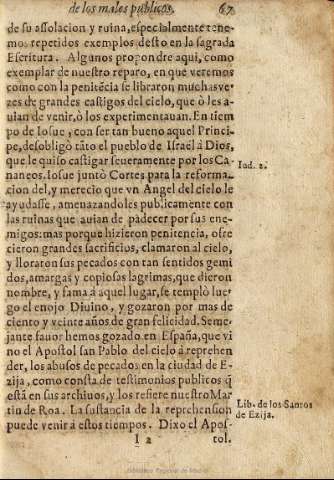 de los males publicos. 67
de su assolacion y ruina, especialmente tene-
mos repetidos exemplos desto en la sagrada
Escritura. Algunos propondre aqui, como
exemplar de nuestro reparo, en que veremos
como con la penitēcia se libraron muchas ve-
zes de grandes castigos del cielo, que ò les a-
uian de venir, ò los experimentauan. En tiem
po de Iosue, con ser tan bueno aquel Princi-
pe, desobligò tāto el pueblo de Israel à Dios,
que le quiso castigar seueramente por los Ca-
naneos. Iosue juntò Cortes para la reforma-
cion del, y merecio que vn Angel del cielo le
ayudasse, amenazandoles publicamente con
las ruinas que auian de padecer por sus ene-
migos: mas porque hizieron penitencia, ofre
cieron grandes sacrificios, clamaron al cielo,
y lloraron sus pecados con tan sentidos gemi
dos, amargas y copiosas lagrimas, que dieron
nombre, y fama à aquel lugar, se templò lue-
go el enojo Diuino, y gozaron por mas de
ciento y veinte años de gran felicidad. Seme-
jante fauor hemos gozado en España, que vi
no el Apostol san Pablo del cielo à reprehen
der, los abusos de pecados en la ciudad de E-
zija, como consta de testimonios publicos q̄
està en sus archiuos, y los refiere nuestro Mar
tin de Roa. La sustancia de la reprehension
puede venir à estos tiempos. Dixo el Apos-
I 2 tol.
Iud. 2.
Lib. de los Santos
de Ezija.
Biblioteca Regional de Madrid